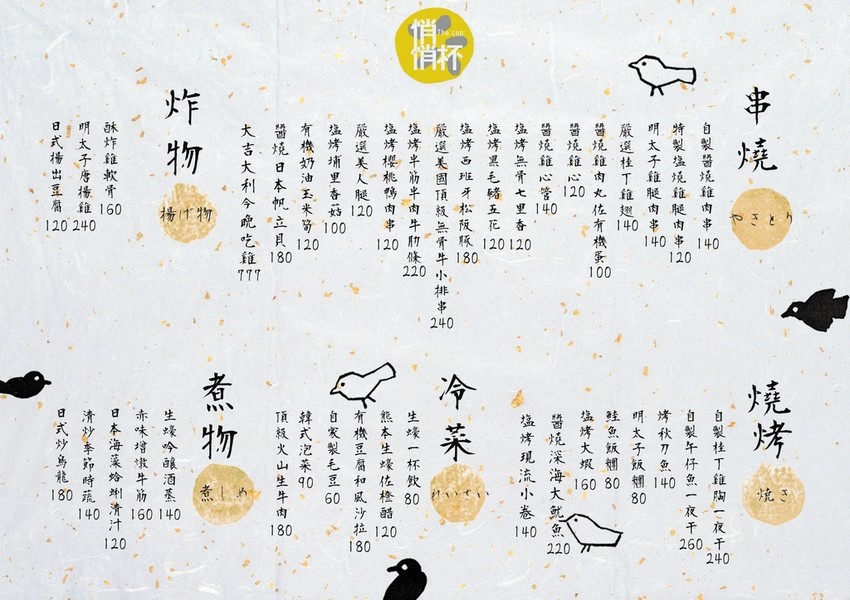 悄悄杯
The cup
串燒
やきとり
自製醬燒雞肉串 140
特製塩燒雞腿肉串 120
明太子雞腿肉串 140
嚴選桂丁雞翅 140
醬燒雞肉丸佐有機蛋 100
醬燒雞心 120
醬燒雞心管 140
塩烤無骨七里香 120
塩烤黑毛豬五花 120
塩烤西班牙松阪豚 180
嚴選美國頂級無骨牛小排串 240
塩烤半筋半肉牛肋條 220
塩烤櫻桃鴨肉串 120
嚴選美人腿 120
塩烤埔里香菇 100
有機奶油玉米筍 120
醬燒日本帆立貝 180
大吉大利今晚吃雞 777
炸物
揚げ物
酥炸雞軟骨 160
明太子唐楊雞 240
日式楊出豆腐 120
燒烤
焼き
自製桂丁雞胸一夜干 240
自製午仔魚一夜干 260
烤秋刀魚 140
明太子飯糰 80
鮭魚飯糰 80
塩烤大蝦 160
醬燒深海大魷魚 220
塩烤現流小卷 140
冷菜
れいさい
生蠔一杯飲 80
熊本生蠔佐橙醋 120
有機豆腐和風沙拉 180
自家製毛豆 60
韓式泡菜 90
頂級火山生牛肉 180
煮物
煮しめ
生蠔吟釀酒蒸 140
赤味增燉牛筋 160
日本海藻蛤蜊清汁 120
清炒季節時蔬 140
日式炒烏龍 180